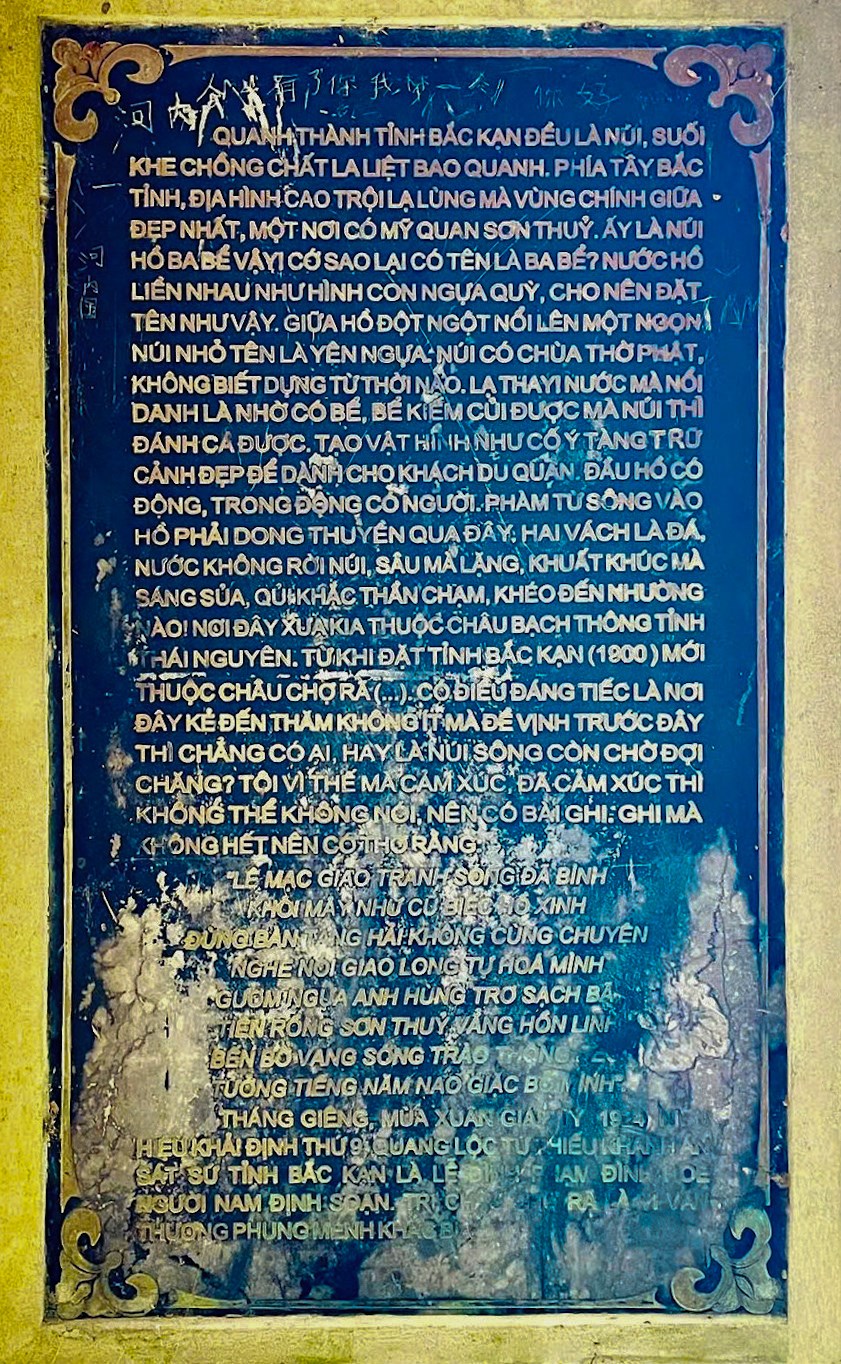 河内 今 有了你我 一个 你好
QUANH THÀNH TỈNH BẮC KẠN ĐỀU LÀ NÚI, SUỐI
KHE CHỒNG CHẤT LA LIỆT BAO QUANH. PHÍA TÂY BẮC
TỈNH, ĐỊA HÌNH CAO TRỘI LẠ LÙNG MÀ VÙNG CHÍNH GIỮA
ĐẸP NHẤT, MỘT NƠI CÓ MỸ QUAN SƠN THUỶ. ẤY LÀ NÚI
HỒ BA BỂ VẬY! CỚ SAO LẠI CÓ TÊN LÀ BA BỂ? NƯỚC HỒ
LIỀN NHAU NHƯ HÌNH CON NGỰA QUỲ, CHO NÊN ĐẶT
TÊN NHƯ VẬY. GIỮA HỒ ĐỘT NGỘT NỔI LÊN MỘT NGỌN
NÚI NHỎ TÊN LÀ YÊN NGỰA. NÚI CÓ CHÙA THỜ PHẬT,
KHÔNG BIẾT DỰNG TỪ THỜI NÀO. LẠ THAY! NƯỚC MÀ NỔI
DANH LÀ NHỜ CÓ BỂ, BỂ KIẾM CỦI ĐƯỢC MÀ NÚI THÌ
ĐÁNH CÁ ĐƯỢC. TẠO VẬT HÌNH NHƯ CỐ Ý TÀNG TRỮ
CẢNH ĐẸP ĐỂ DÀNH CHO KHÁCH DU QUAN. ĐẦU HỒ CÓ
ĐỘNG, TRONG ĐỘNG CÓ NGƯỜI. PHÀM TỪ SÔNG VÀO
HỒ PHẢI DONG THUYỀN QUA ĐÂY. HAI VÁCH LÀ ĐÁ,
NƯỚC KHÔNG RỜI NÚI, SÂU MÀ LẶNG, KHUẤT KHÚC MÀ
SÁNG SỦA, QUỈ KHẮC THẦN CHẠM, KHÉO ĐẾN NHƯỜNG
NÀO! NƠI ĐÂY XƯA KIA THUỘC CHÂU BẠCH THÔNG TỈNH
THÁI NGUYÊN. TỪ KHI ĐẶT TỈNH BẮC KẠN (1900) MỚI
THUỘC CHÂU CHỢ RÃ (...). CÓ ĐIỀU ĐÁNG TIẾC LÀ NƠI
ĐÂY KẺ ĐẾN THĂM KHÔNG ÍT MÀ ĐỀ VỊNH TRƯỚC ĐÂY
THÌ CHẲNG CÓ AI. HAY LÀ NÚI SÔNG CÒN CHỜ ĐỢI
CHĂNG? TÔI VÌ THẾ MÀ CẢM XÚC, ĐÃ CẢM XÚC THÌ
KHÔNG THỂ KHÔNG NÓI, NÊN CÓ BÀI GHI. GHI MÀ
KHÔNG HẾT NÊN CÓ THƠ RẰNG:
"LÊ MẠC GIAO TRANH SÓNG ĐÃ BÌNH
KHÓI MÂY NHƯ CŨ BIẾC HỒ XINH
ĐỪNG BÀN TANG HẢI KHÔNG CÙNG CHUYỆN
NGHE NÓI GIAO LONG TỰ HOÁ MÌNH
GƯƠM NGỰA ANH HÙNG TRƠ SẠCH
TIÊN RỒNG SƠN THUỶ VẲNG HỒN LINH
BÊN BỜ VẲNG SÓNG TRÀO
TƯỞNG TIẾNG NĂM NAO GIẶC"
THÁNG GIÊNG, MÙA XUÂN GIÁP TÝ 1924
HIỆU KHẢI ĐỊNH THỨ 9, QUANG LỘC TỰ THIẾU KHANH ÁN
SÁT SỨ TỈNH BẮC KẠN LÀ LÊ ĐÌNH PHẠM ĐÌNH HOÈ
NGƯỜI NAM ĐỊNH SOẠN. TRI CHÂU RÃ LÀ
THƯỞNG PHỤNG MỆNH KHẮC
河内
国